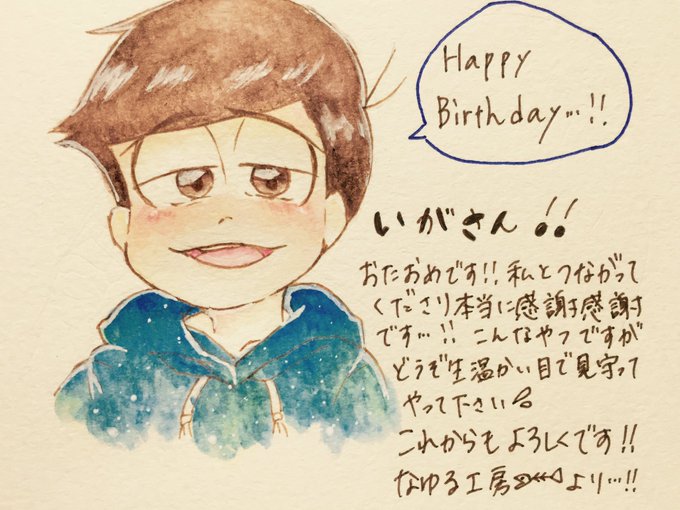 Happy
Birthday…!!
いがさん!!
おたおめです!! 私とつながって
くださり本当に感謝感謝
です…!! こんなやつですが
どうぞ生温かい目で見守って
やって下さい
これからもよろしくです!!
なゆる工房より…!!